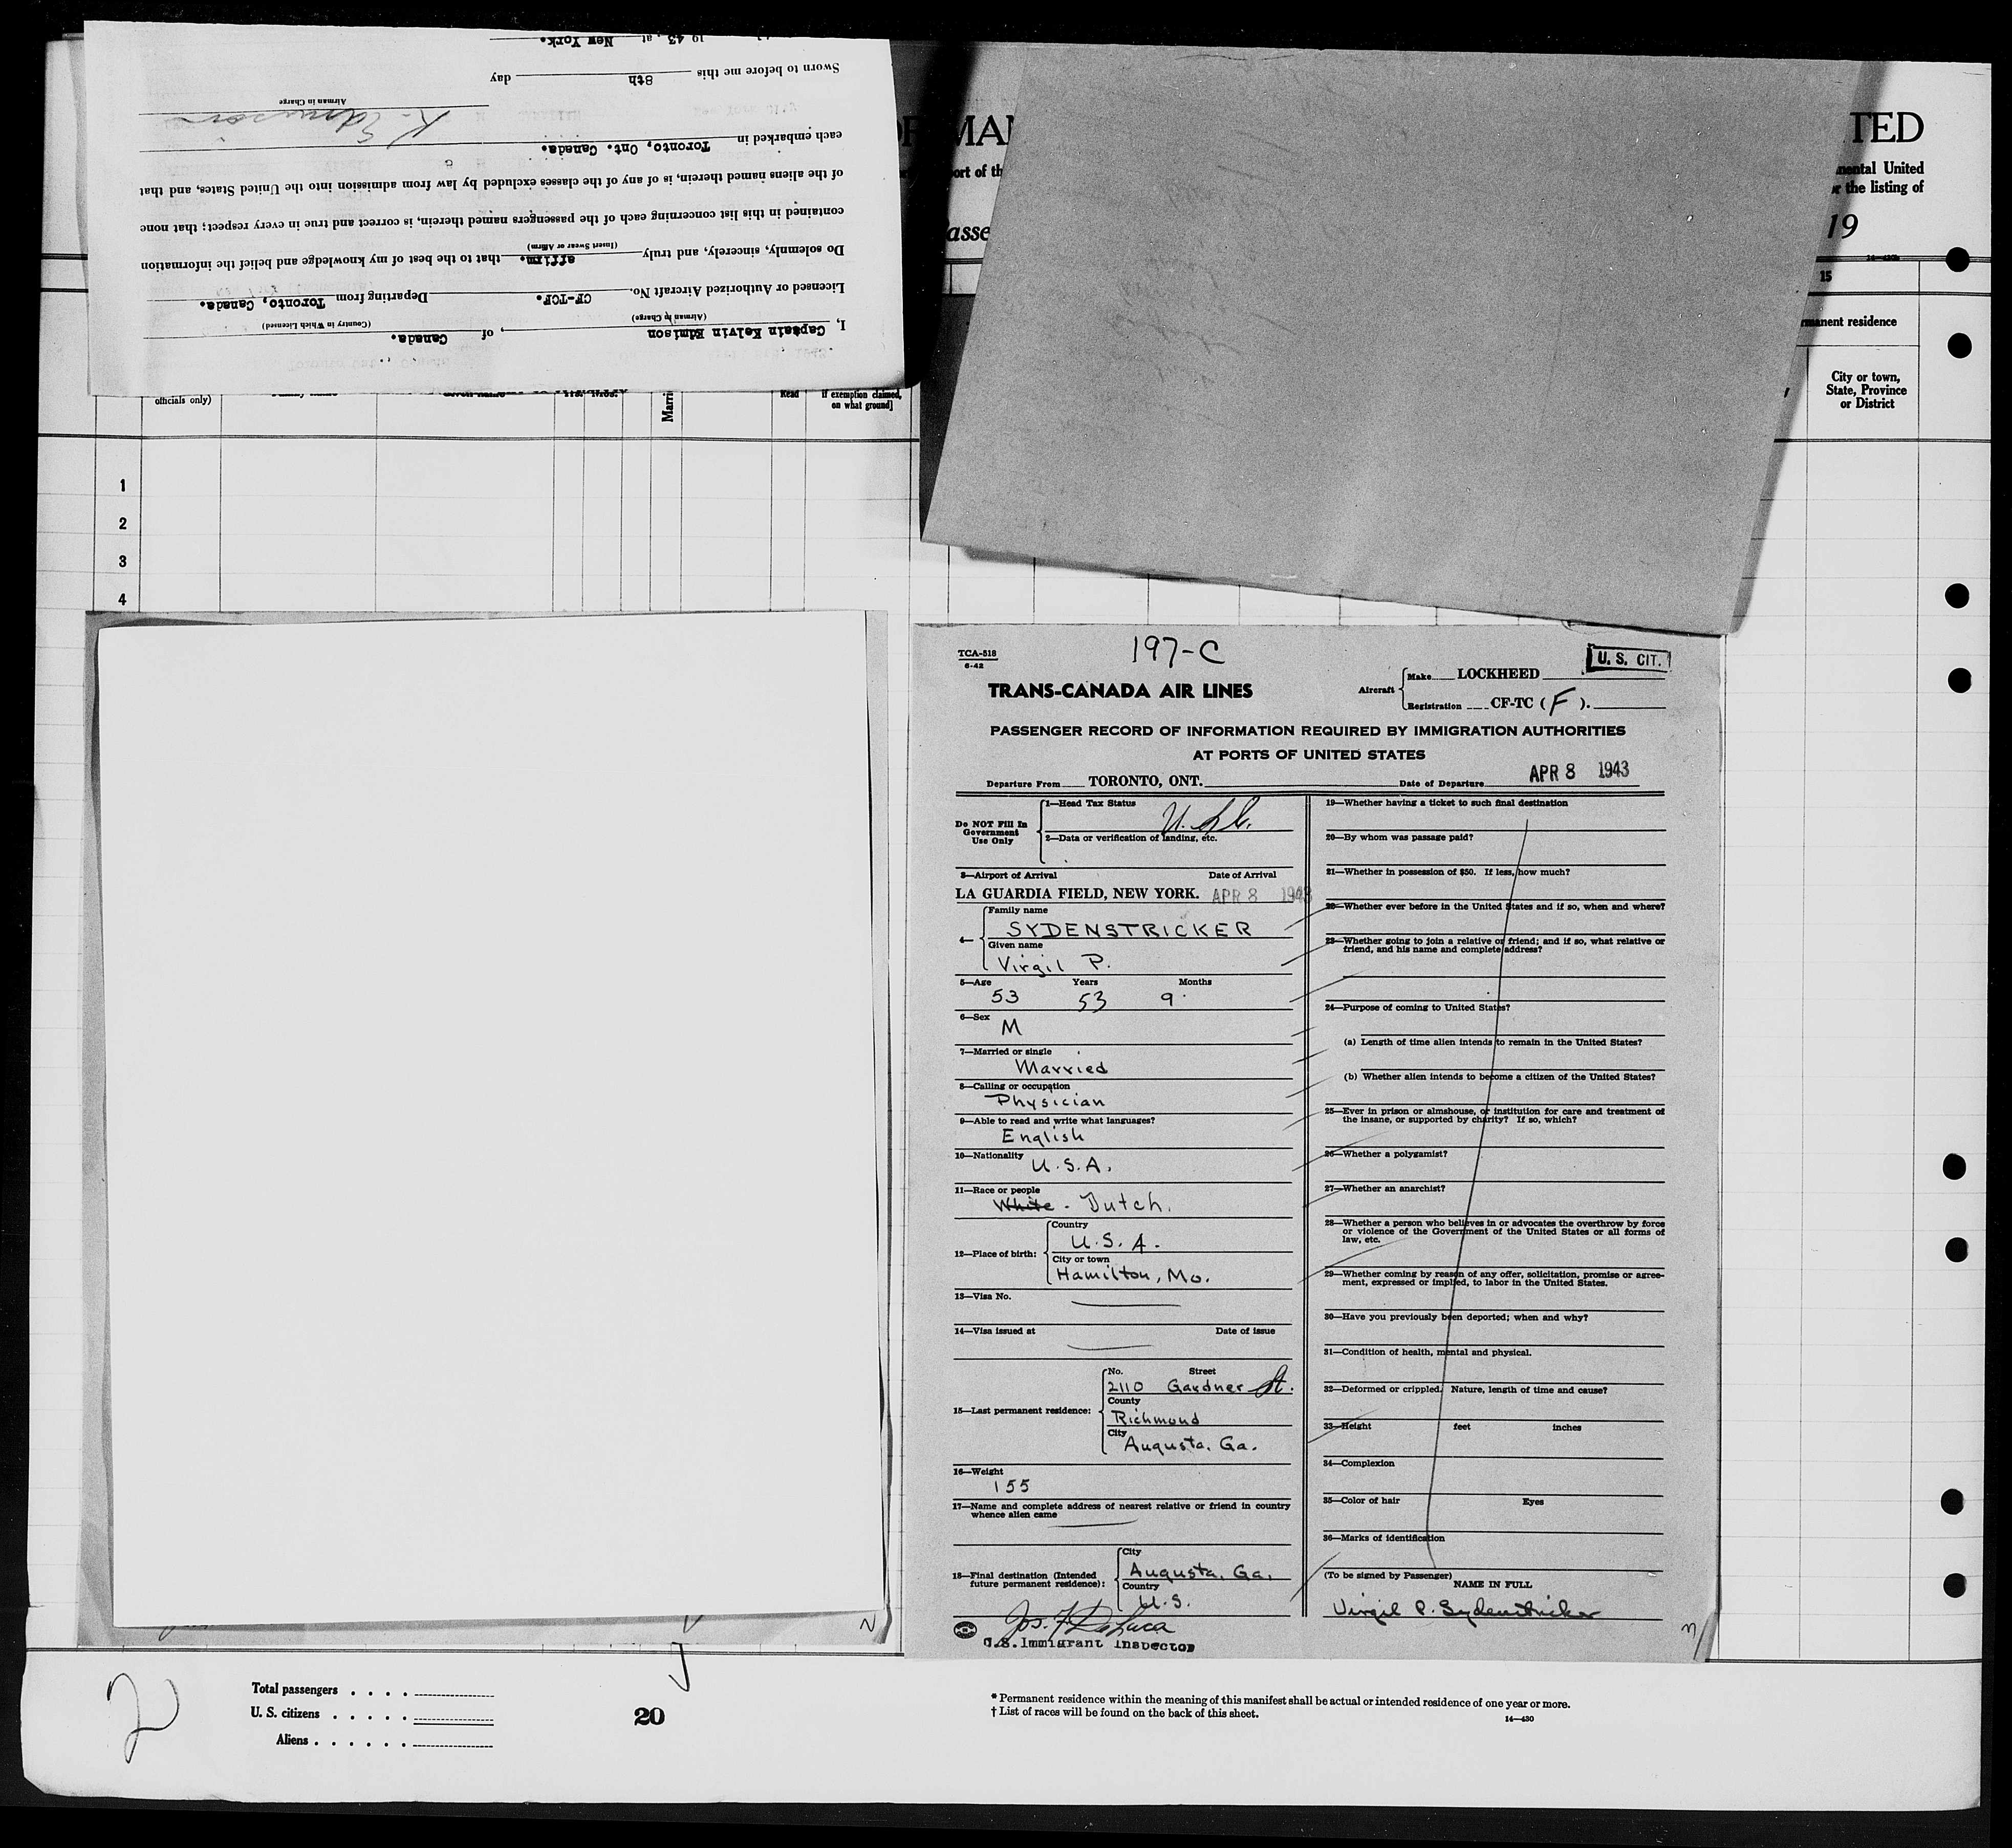 I, Captain Kelvin Edmison, of Canada.
(Airman in Charge) (Country in Which Licensed)
Licensed or Authorized Aircraft No. CF-TCF. Departing from Toronto, Canada.
Do solemnly, sincerely, and truly affirm. that to the best of my knowledge and belief the information
(Insert Swear or Affirm)
contained in this list concerning each of the passengers named therein, is correct and true in every respect; that none
of the aliens named therein, is of any of the classes excluded by law from admission into the United States, and that
each embarked in Toronto, Ont. Canada.
K. Edmison
Airman in Charge
Sworn to before me this 8th day
19 43, at New York.
TED
ort of th
mental United
r the listing of
asse
19
15
manent residence
City or town,
State, Province
or District
officials only)
Read
If exemption claimed,
on what ground]
1
2
3
4
TCA-518
6-42
197-C
U. S. CIT.
TRANS-CANADA AIR LINES
Aircraft
Make LOCKHEED
Registration CF-TC (F).
PASSENGER RECORD OF INFORMATION REQUIRED BY IMMIGRATION AUTHORITIES
AT PORTS OF UNITED STATES
Departure From TORONTO, ONT. Date of Departure APR 8 1943
Do NOT Fill In
Government
Use Only
1—Head Tax Status
2—Data or verification of landing, etc.
3—Airport of Arrival Date of Arrival
LA GUARDIA FIELD, NEW YORK. APR 8 1943
4—
Family name
SYDENSTRICKER
Given name
Virgil P.
5—Age Years Months
53 53 9
6—Sex
M
7—Married or single
Married
8—Calling or occupation
Physician
9—Able to read and write what languages?
English
10—Nationality
U.S.A.
11—Race or people
White - Dutch.
12—Place of birth:
Country
U.S.A.
City or town
Hamilton, Mo.
13—Visa No.
14—Visa issued at Date of issue
15—Last permanent residence:
No. Street
2110 Gardner St.
County
Richmond
City
Augusta, Ga.
16—Weight
155
17—Name and complete address of nearest relative or friend in country
whence alien came
18—Final destination (Intended
future permanent residence):
City
Augusta, Ga.
Country
U.S.
U.S. Immigrant Inspector
19—Whether having a ticket to such final destination
20—By whom was passage paid?
21—Whether in possession of $50. If less, how much?
22—Whether ever before in the United States and if so, when and where?
23—Whether going to join a relative or friend; and if so, what relative or
friend, and his name and complete address?
24—Purpose of coming to United States?
(a) Length of time alien intends to remain in the United States?
(b) Whether alien intends to become a citizen of the United States?
25—Ever in prison or almshouse, or institution for care and treatment of
the insane, or supported by charity? If so, which?
26—Whether a polygamist?
27—Whether an anarchist?
28—Whether a person who believes in or advocates the overthrow by force
or violence of the Government of the United States or all forms of
law, etc.
29—Whether coming by reason of any offer, solicitation, promise or agree-
ment, expressed or implied, to labor in the United States.
30—Have you previously been deported; when and why?
31—Condition of health, mental and physical.
32—Deformed or crippled. Nature, length of time and cause?
33—Height feet inches
34—Complexion
35—Color of hair Eyes
36—Marks of identification
(To be signed by Passenger)
NAME IN FULL
Virgil P. Sydenstricker
2
Total passengers . . . .
U. S. citizens . . . . .
Aliens . . . . . .
20
* Permanent residence within the meaning of this manifest shall be actual or intended residence of one year or more.
† List of races will be found on the back of this sheet.
14—430